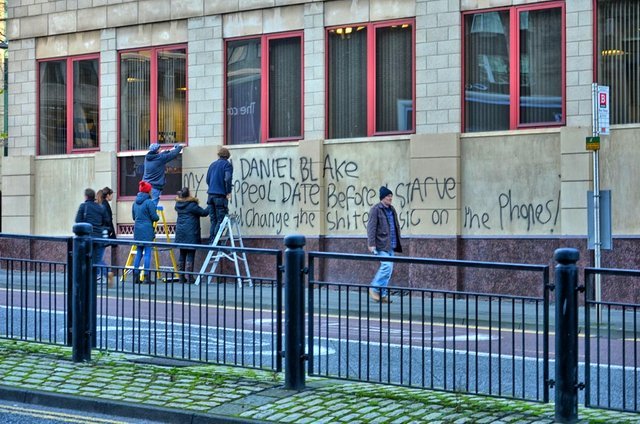 The con
DANIEL BLAKE
MY APPEAL DATE BEFORE I STARVE
CHANGE THE SHITE MUSIC ON THE PHONES!
B